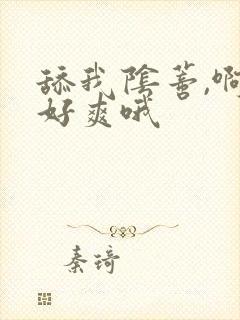 舔我阴蒂,啊
好爽哦
秦琦